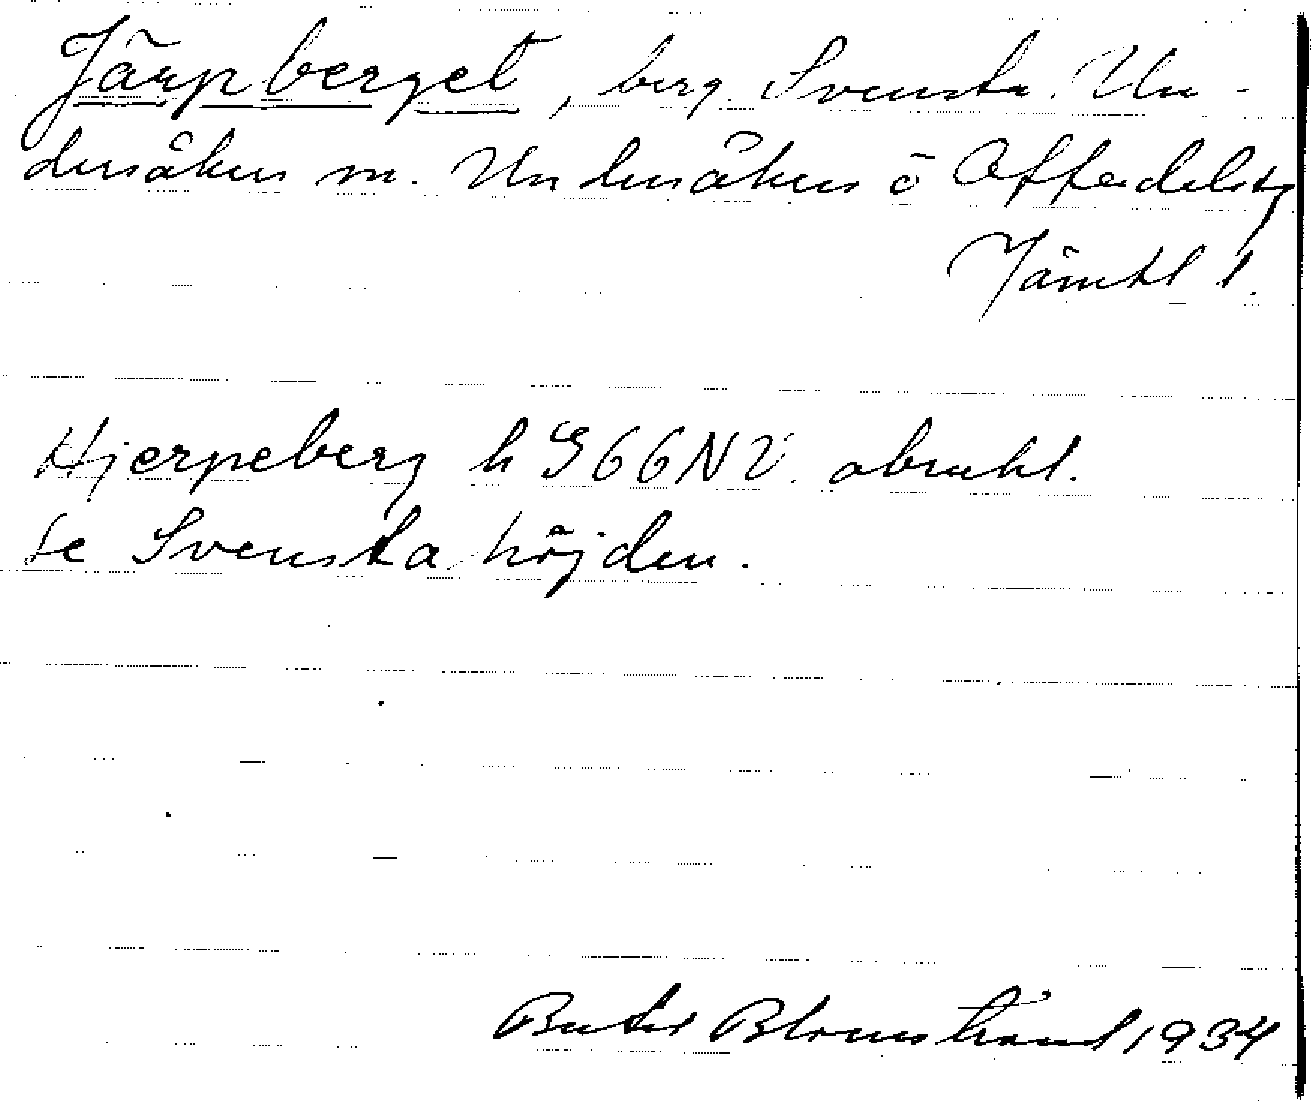 Järpberget, berg. Svensta. Un-
dersåkers sn. Undersåkers o Offerdals tg
Jämtl l.
Hjerpeberg h 966NV. obrukl.
Se Svensta höjden.
Blomstrand 1934